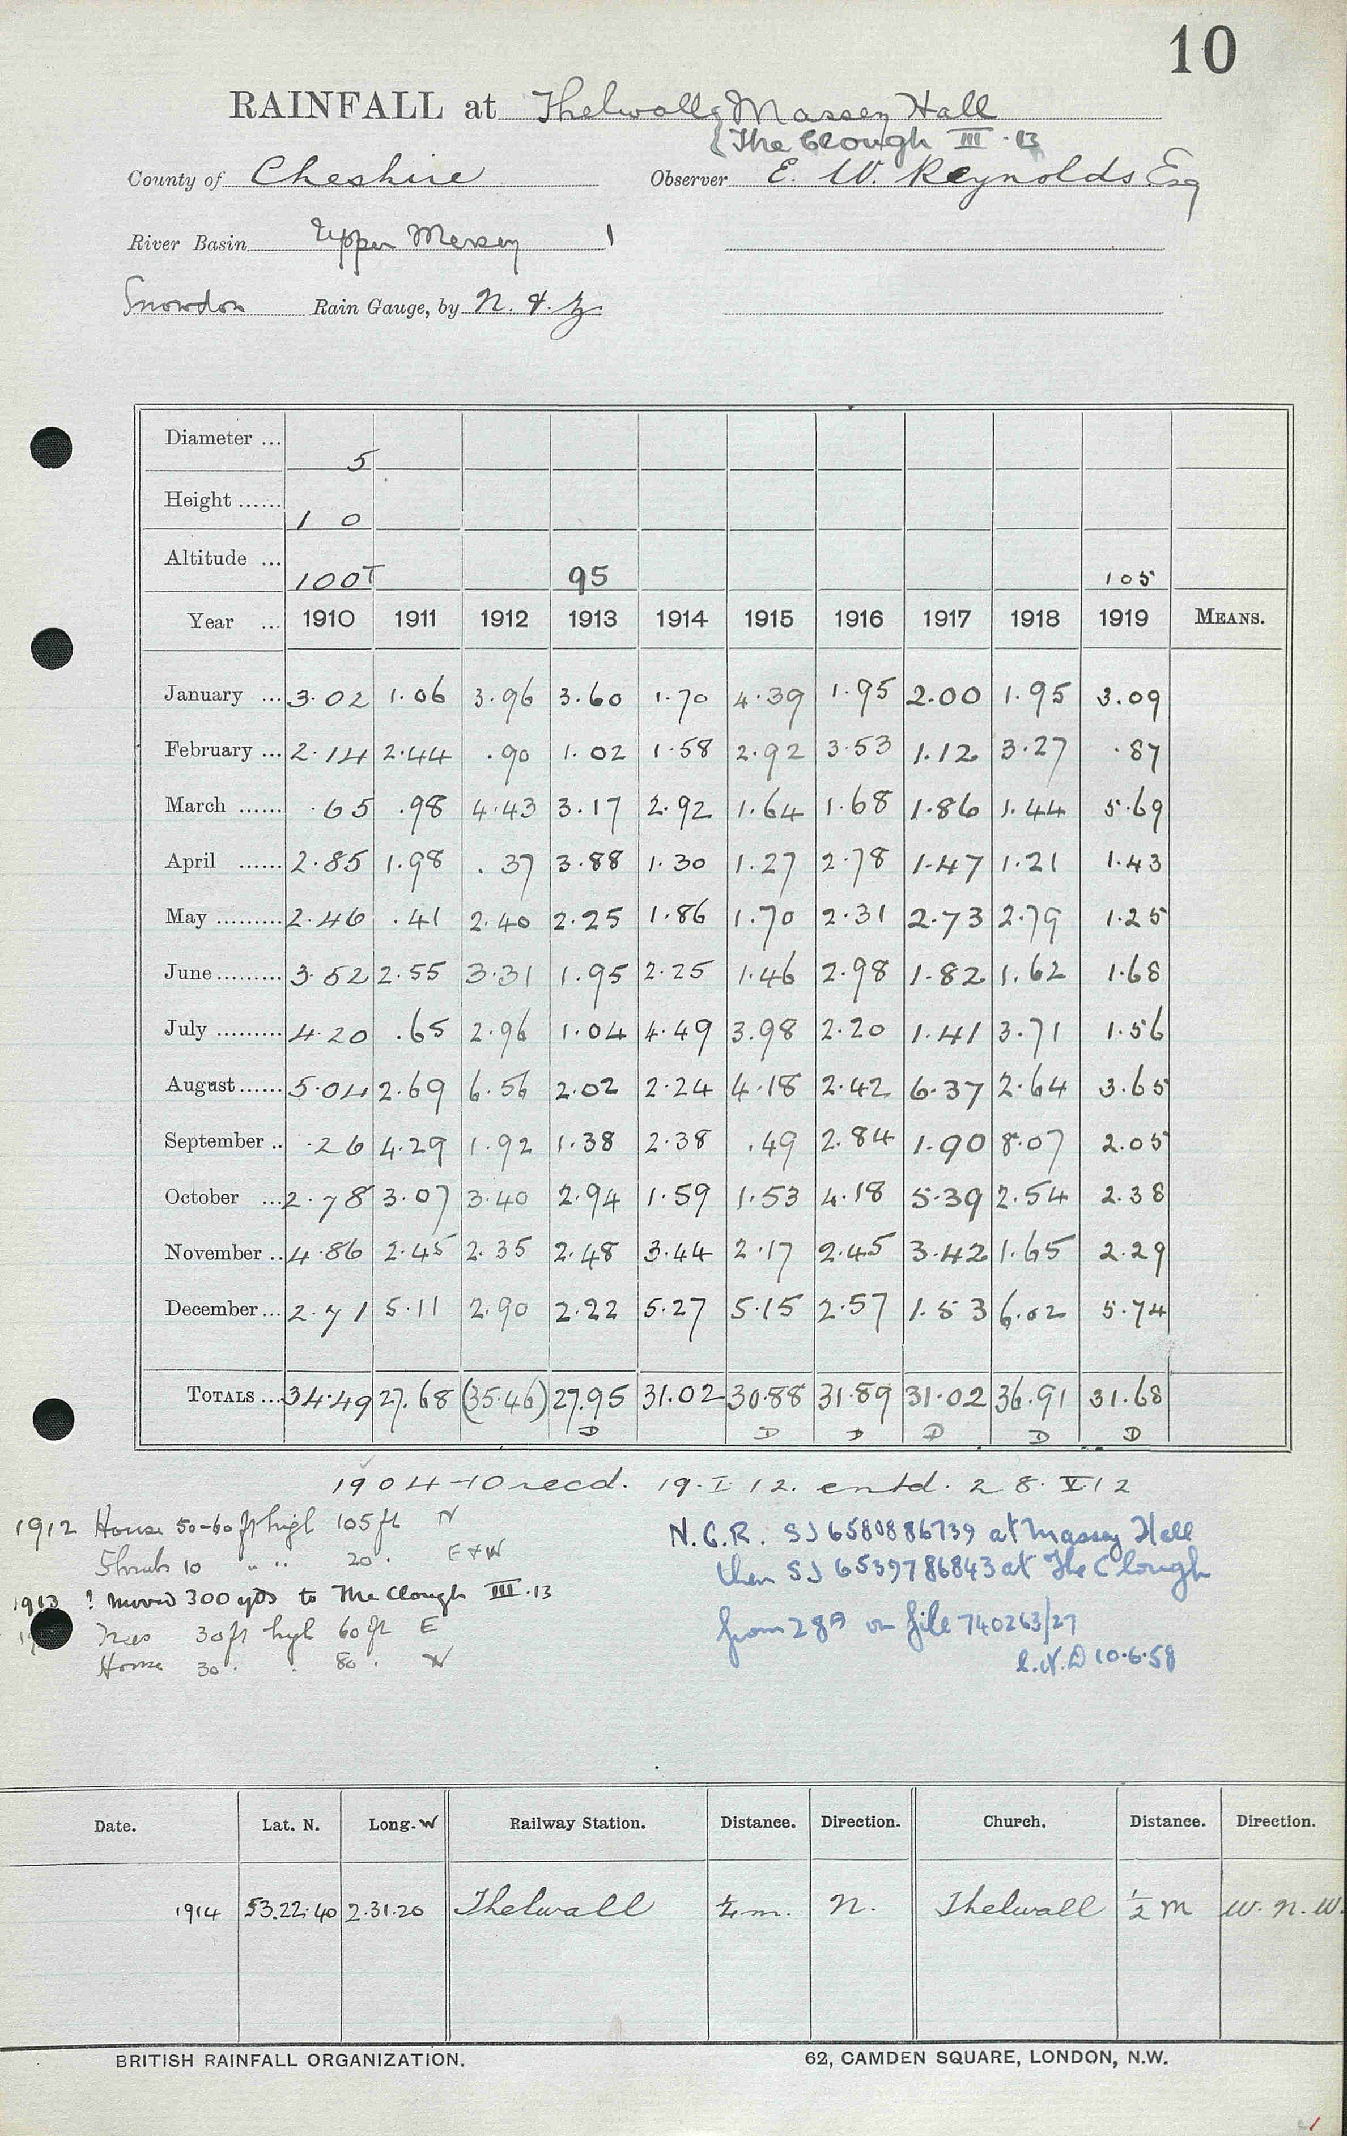 10
RAINFALL at Thelwall, Massey Hall
{The Clough III.13
County of Cheshire Observer E. W. Reynolds Esq
River Basin Upper Mersey 1
Snowdon Rain Gauge, by N. & Z.
Diameter ... 5
Height ...... 1 0
Altitude ... 100T 95 105
Year ... 1910 1911 1912 1913 1914 1915 1916 1917 1918 1919 MEANS.
January ... 3.02 1.06 3.96 3.60 1.70 4.39 1.95 2.00 1.95 3.09
February ... 2.14 2.44 .90 1.02 1.58 2.92 3.53 1.12 3.27 .87
March ...... .65 .98 4.43 3.17 2.92 1.64 1.68 1.86 1.44 5.69
April ...... 2.85 1.98 .37 3.88 1.30 1.27 2.78 1.47 1.21 1.43
May ......... 2.46 .41 2.40 2.25 1.86 1.70 2.31 2.73 2.79 1.25
June ......... 3.52 2.55 3.31 1.95 2.25 1.46 2.98 1.82 1.62 1.68
July ......... 4.20 .65 2.96 1.04 4.49 3.98 2.20 1.41 3.71 1.56
August ...... 5.04 2.69 6.56 2.02 2.24 4.18 2.42 6.37 2.64 3.65
September .. .26 4.29 1.92 1.38 2.38 .49 2.84 1.90 8.07 2.05
October ... 2.78 3.07 3.40 2.94 1.59 1.53 4.18 5.39 2.54 2.38
November .. 4.86 2.45 2.35 2.48 3.44 2.17 2.45 3.42 1.65 2.29
December ... 2.71 5.11 2.90 2.22 5.27 5.15 2.57 1.53 6.02 5.74
TOTALS ... 34.49 27.68 (35.46) 27.95 31.02 30.88 31.89 31.02 36.91 31.68
D D D D D D
1904-10 recd. 19.I.12. entd. 28.V.12
1912 House 50-60 ft high 105 ft N
Shrubs 10 " " 20 . E & W
1913 ? moved 300 yds to The Clough III.13
Trees 30 ft high 60 ft E
House 30 . . 80 . W
N.G.R. SJ 65808 86739 at Massey Hall
then SJ 65397 86843 at The Clough
from 28A on file 740263/27
10.6.58
Date. Lat. N. Long. W Railway Station. Distance. Direction. Church. Distance. Direction.
1914 53.22.40 2.31.20 Thelwall ¼ m. N. Thelwall ½ m W. N. W.
BRITISH RAINFALL ORGANIZATION. 62, CAMDEN SQUARE, LONDON, N.W.